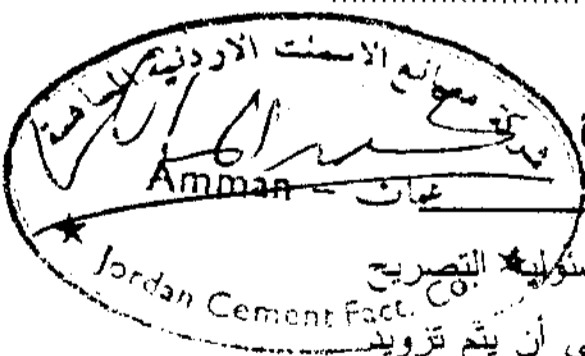 شركة مصانع الاسمنت الاردنية المساهمة
Amman - عمان
Jordan Cement Fact. Co.
التصريح
أن يتم تزويد